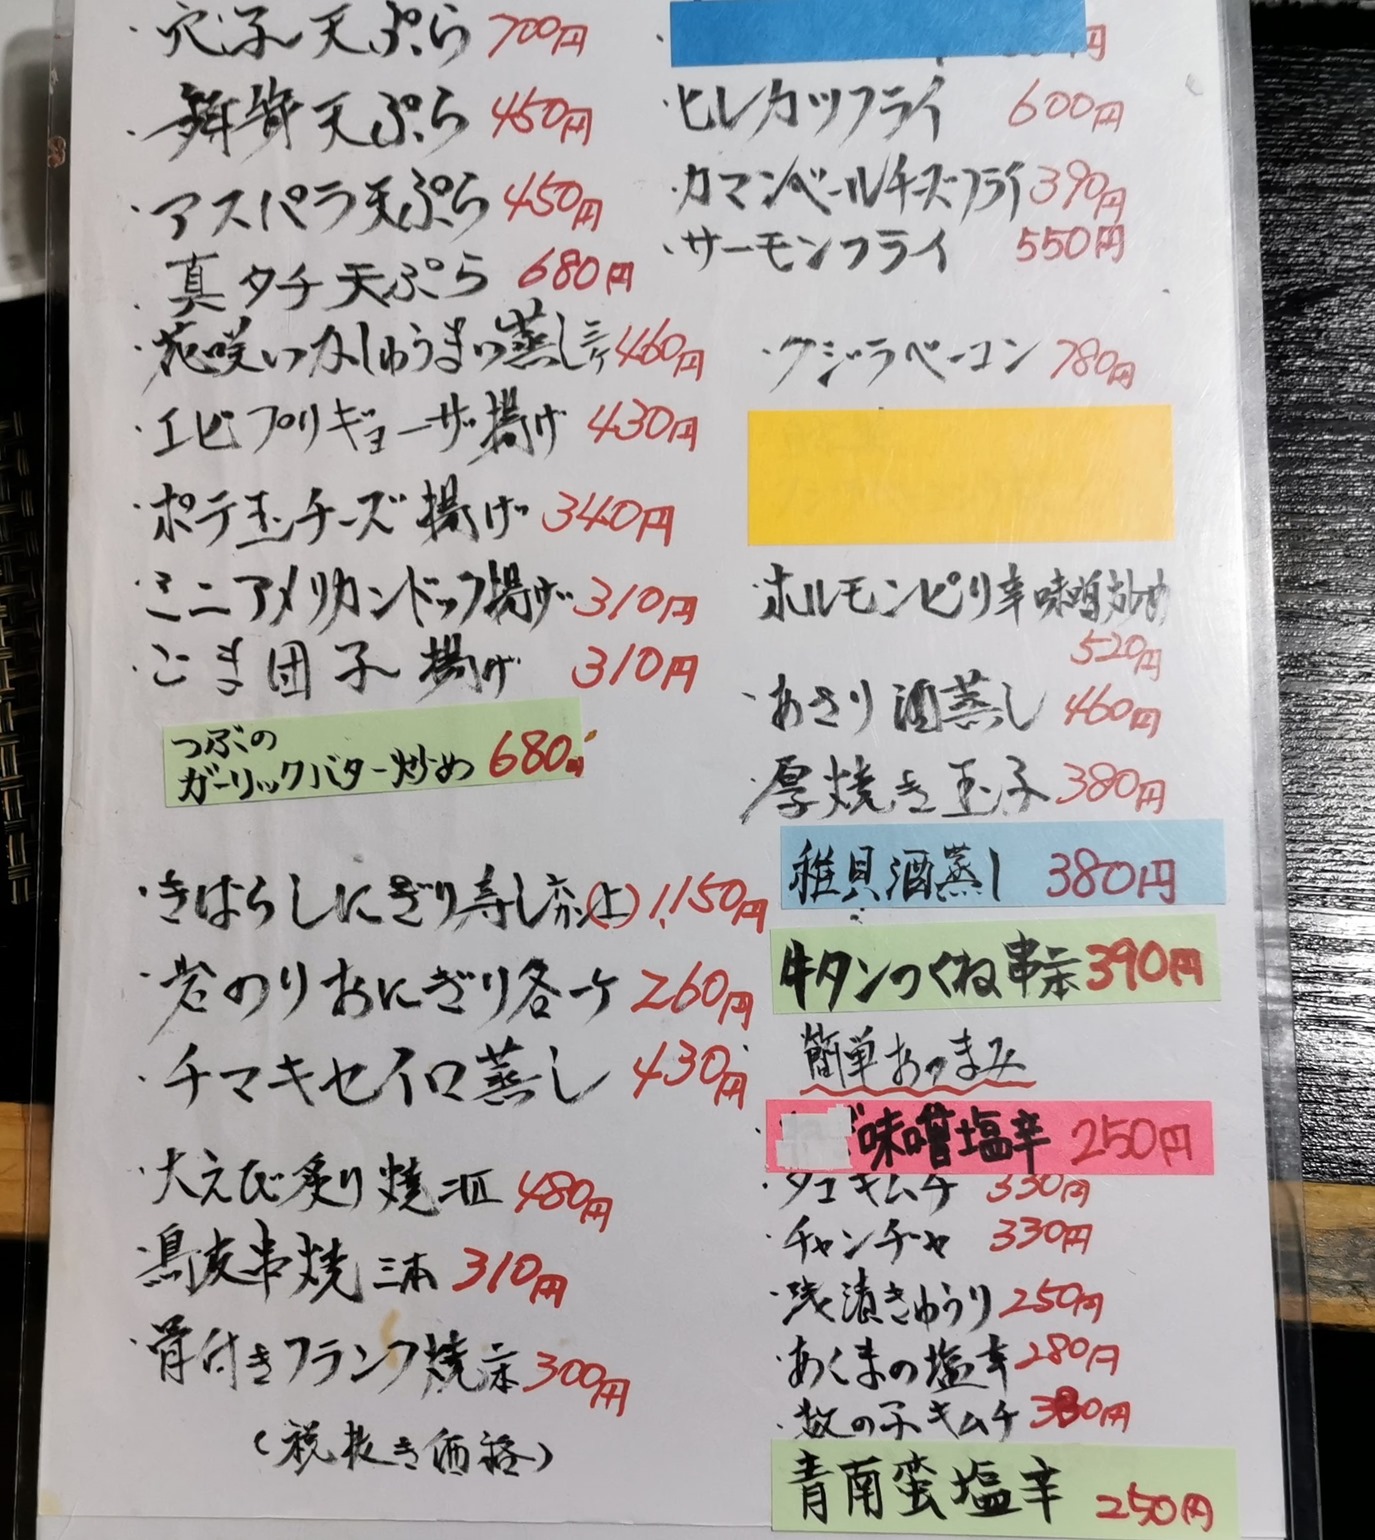 ・穴子天ぷら 700円
・舞茸天ぷら 450円
・アスパラ天ぷら 450円
・真タチ天ぷら 680円
・花咲いかしゅうまい蒸し三ケ 460円
・エビプリギョーザ揚げ 430円
・ポテ玉チーズ揚げ 340円
・ミニアメリカンドッグ揚げ 310円
・ごま団子揚げ 310円
つぶの
ガーリックバター炒め 680円
・きはらしにぎり寿し六カン(上) 1,150円
・岩のりおにぎり各一ケ 260円
・チマキセイロ蒸し 430円
・大えび炙り焼二匹 480円
・鳥皮串焼三本 310円
・骨付きフランク焼二本 300円
(税抜き価格)
ヒレカツフライ 600円
・カマンベールチーズフライ 390円
・サーモンフライ 550円
・クジラベーコン 780円
・ホルモンピリ辛味噌炒め
520円
・あさり酒蒸し 460円
・厚焼き玉子 380円
稚貝酒蒸し 380円
牛タンつくね串二本 390円
簡単おつまみ
味噌塩辛 250円
・タコキムチ 330円
・チャンヂャ 330円
・浅漬きゅうり 250円
・あくまの塩辛 280円
・数の子キムチ 380円
青南蛮塩辛 250円